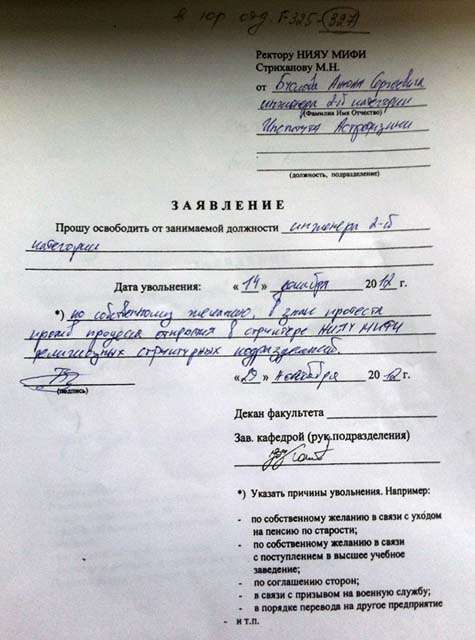 в юр отд. F325-(327)
Ректору НИЯУ МИФИ
Стриханову М.Н.
от Буслова Антона Сергеевича
инженера 2-й категории
(Фамилия Имя Отчество)
Института Астрофизики
(должность, подразделение)
ЗАЯВЛЕНИЕ
Прошу освободить от занимаемой должности инженера 2-й
категории
Дата увольнения: «14» декабря 2012 г.
*) по собственному желанию, в знак протеста
против процесса открытия в структуре НИЯУ МИФИ
религиозных структурных подразделений.
« » ноября 2012 г.
(подпись)
Декан факультета
Зав. кафедрой (рук.подразделения)
*) Указать причины увольнения. Например:
- по собственному желанию в связи с уходом
на пенсию по старости;
- по собственному желанию в связи
с поступлением в высшее учебное
заведение;
- по соглашению сторон;
- в связи с призывом на военную службу;
- в порядке перевода на другое предприятие
- и т.п.